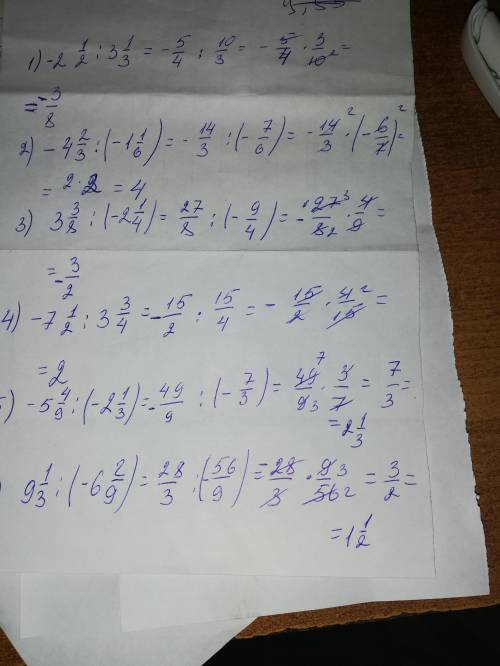 1) -2 1/2 : 3 1/3 = -5/4 : 10/3 = -5/4 · 3/10 2 =
= -3/8
2) -4 2/3 : (-1 1/6) = -14/3 : (-7/6) = -14/3 2 · (-6/7) 2 =
= 2 · 2 = 4
3) 3 3/8 : (-2 1/4) = 27/8 : (-9/4) = -27/8 3 2 · 4/9 =
= -3/2
4) -7 1/2 : 3 3/4 = -15/2 : 15/4 = -15/2 · 4/15 2 =
= 2
5) -5 4/9 : (-2 1/3) = -49/9 : (-7/3) = 49/9 7 3 · 3/7 = 7/3 =
= 2 1/3
) 9 1/3 : (-6 2/9) = 28/3 : (-56/9) = 28/3 · 9/56 3 2 = 3/2 =
= 1 1/2